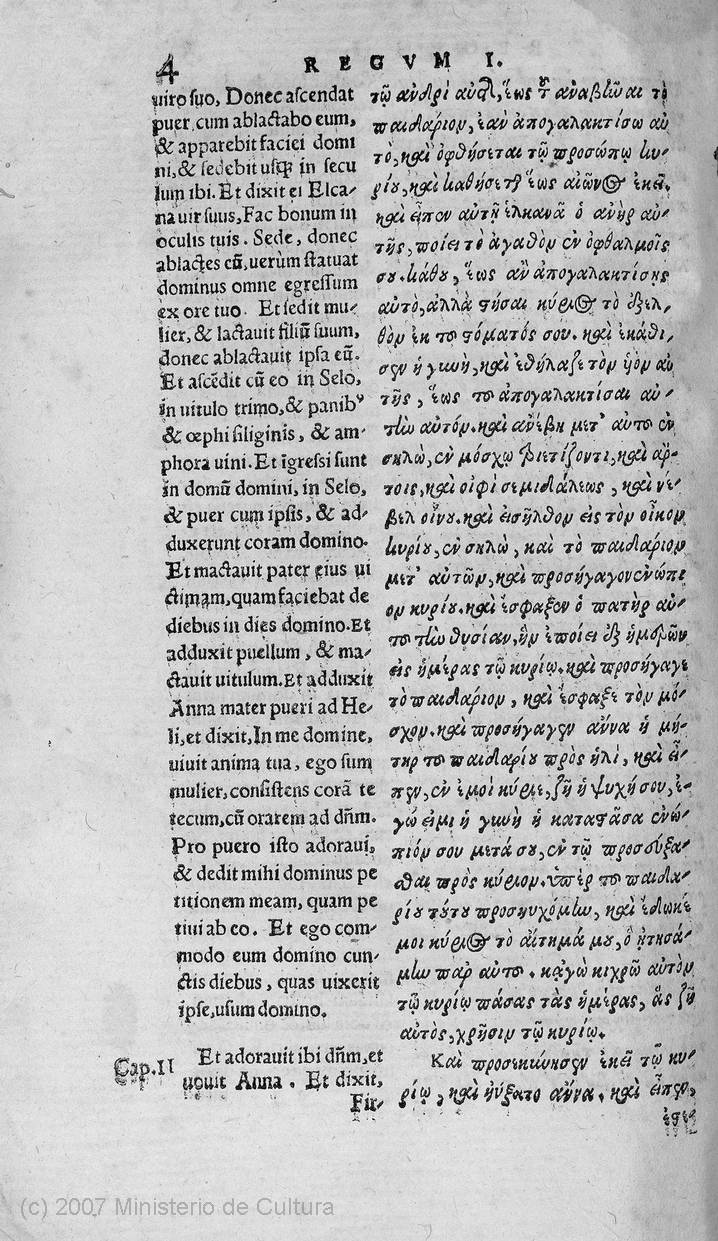 4
REGVM I.
uiro suo, Donec ascendat
puer, cum ablactabo eum,
& apparebit faciei domi
ni, & sedebit usq; in secu
lum ibi. Et dixit ei Elca-
na uir suus, Fac bonum in
oculis tuis. Sede, donec
ablactes cũ, uerùm statuat
dominus omne egressum
ex ore tuo. Et sedit mu-
lier, & lactauit filiũ suum,
donec ablactauit ipsa eũ.
Et ascẽdit cũ eo in Selo,
in uitulo trimo, & panibꝰ
& œphi siliginis, & am-
phora uini. Et ĩgressi sunt
in domũ domini, in Selo,
& puer cum ipsis, & ad-
duxerunt coram domino.
Et mactauit pater eius ui
ctimam, quam faciebat de
diebus in dies domino. Et
adduxit puellum, & ma-
ctauit uitulum. Et adduxit
Anna mater pueri ad He-
li, et dixit, In me domine,
uiuit anima tua, ego sum
mulier, consistens corã te
tecum, cũ orarem ad dñm.
Pro puero isto adoraui,
& dedit mihi dominus pe
titionem meam, quam pe
tiui ab eo. Et ego com-
modo eum domino cun-
ctis diebus, quas uixerit
ipse, usum domino.
Cap. II
Et adorauit ibi dñm, et
uouit Anna. Et dixit,
Fir-
τῷ ἀνδρὶ αὐτῆς, ἕως τοῦ ἀναβῆναι τὸ
παιδάριον, ἐὰν ἀπογαλακτίσω αὐ
τὸ, καὶ ὀφθήσεται τῷ προσώπῳ κυ-
ρίου, καὶ καθήσεται ἕως αἰῶνος ἐκεῖ.
καὶ εἶπεν αὐτῇ ἑλκανὰ ὁ ἀνὴρ αὐ-
τῆς, ποίει τὸ ἀγαθὸν ἐν ὀφθαλμοῖς
σου. κάθου, ἕως ἂν ἀπογαλακτίσῃς
αὐτὸ, ἀλλὰ στήσαι κύριος τὸ ἐξελ-
θὸν ἐκ τοῦ στόματός σου. καὶ ἐκάθι-
σεν ἡ γυνὴ, καὶ ἐθήλαζε τὸν υἱὸν αὐ
τῆς, ἕως τοῦ ἀπογαλακτίσαι αὐ-
τὴν αὐτόν. καὶ ἀνέβη μετ' αὐτοῦ ἐν
σηλὼ, ἐν μόσχῳ τριετίζοντι, καὶ ἄρ-
τοις, καὶ οἰφὶ σεμιδάλεως, καὶ νέ-
βελ οἴνου. καὶ εἰσῆλθον εἰς τὸν οἶκον
κυρίου, ἐν σηλὼ, καὶ τὸ παιδάριον
μετ' αὐτῶν, καὶ προσήγαγον ἐνώπι
ον κυρίου. καὶ ἔσφαξεν ὁ πατὴρ αὐ-
τοῦ τὴν θυσίαν, ἣν ἐποίει ἐξ ἡμερῶν
εἰς ἡμέρας τῷ κυρίῳ. καὶ προσήγαγε
τὸ παιδάριον, καὶ ἔσφαξε τὸν μό-
σχον. καὶ προσήγαγεν ἄννα ἡ μή-
τηρ τοῦ παιδαρίου πρὸς ἡλὶ, καὶ εἶ-
πεν, ἐν ἐμοὶ κύριε, ζῇ ἡ ψυχή σου, ἐ-
γώ εἰμι ἡ γυνὴ ἡ καταστᾶσα ἐνώ-
πιόν σου μετά σου, ἐν τῷ προσεύξα-
σθαι πρὸς κύριον. ὑπὲρ τοῦ παιδα-
ρίου τούτου προσηυχόμην, καὶ ἔδωκέ
μοι κύριος τὸ αἴτημά μου, ὃ ᾐτησά-
μην παρ' αὐτοῦ. κᾀγὼ κιχρῶ αὐτὸν
τῷ κυρίῳ πάσας τὰς ἡμέρας, ἃς ζῇ
αὐτὸς, χρῆσιν τῷ κυρίῳ.
Καὶ προσεκύνησεν ἐκεῖ τῷ κυ-
ρίῳ, καὶ ηὔξατο ἄννα. καὶ εἶπεν,
ἐστε-
(c) 2007 Ministerio de Cultura